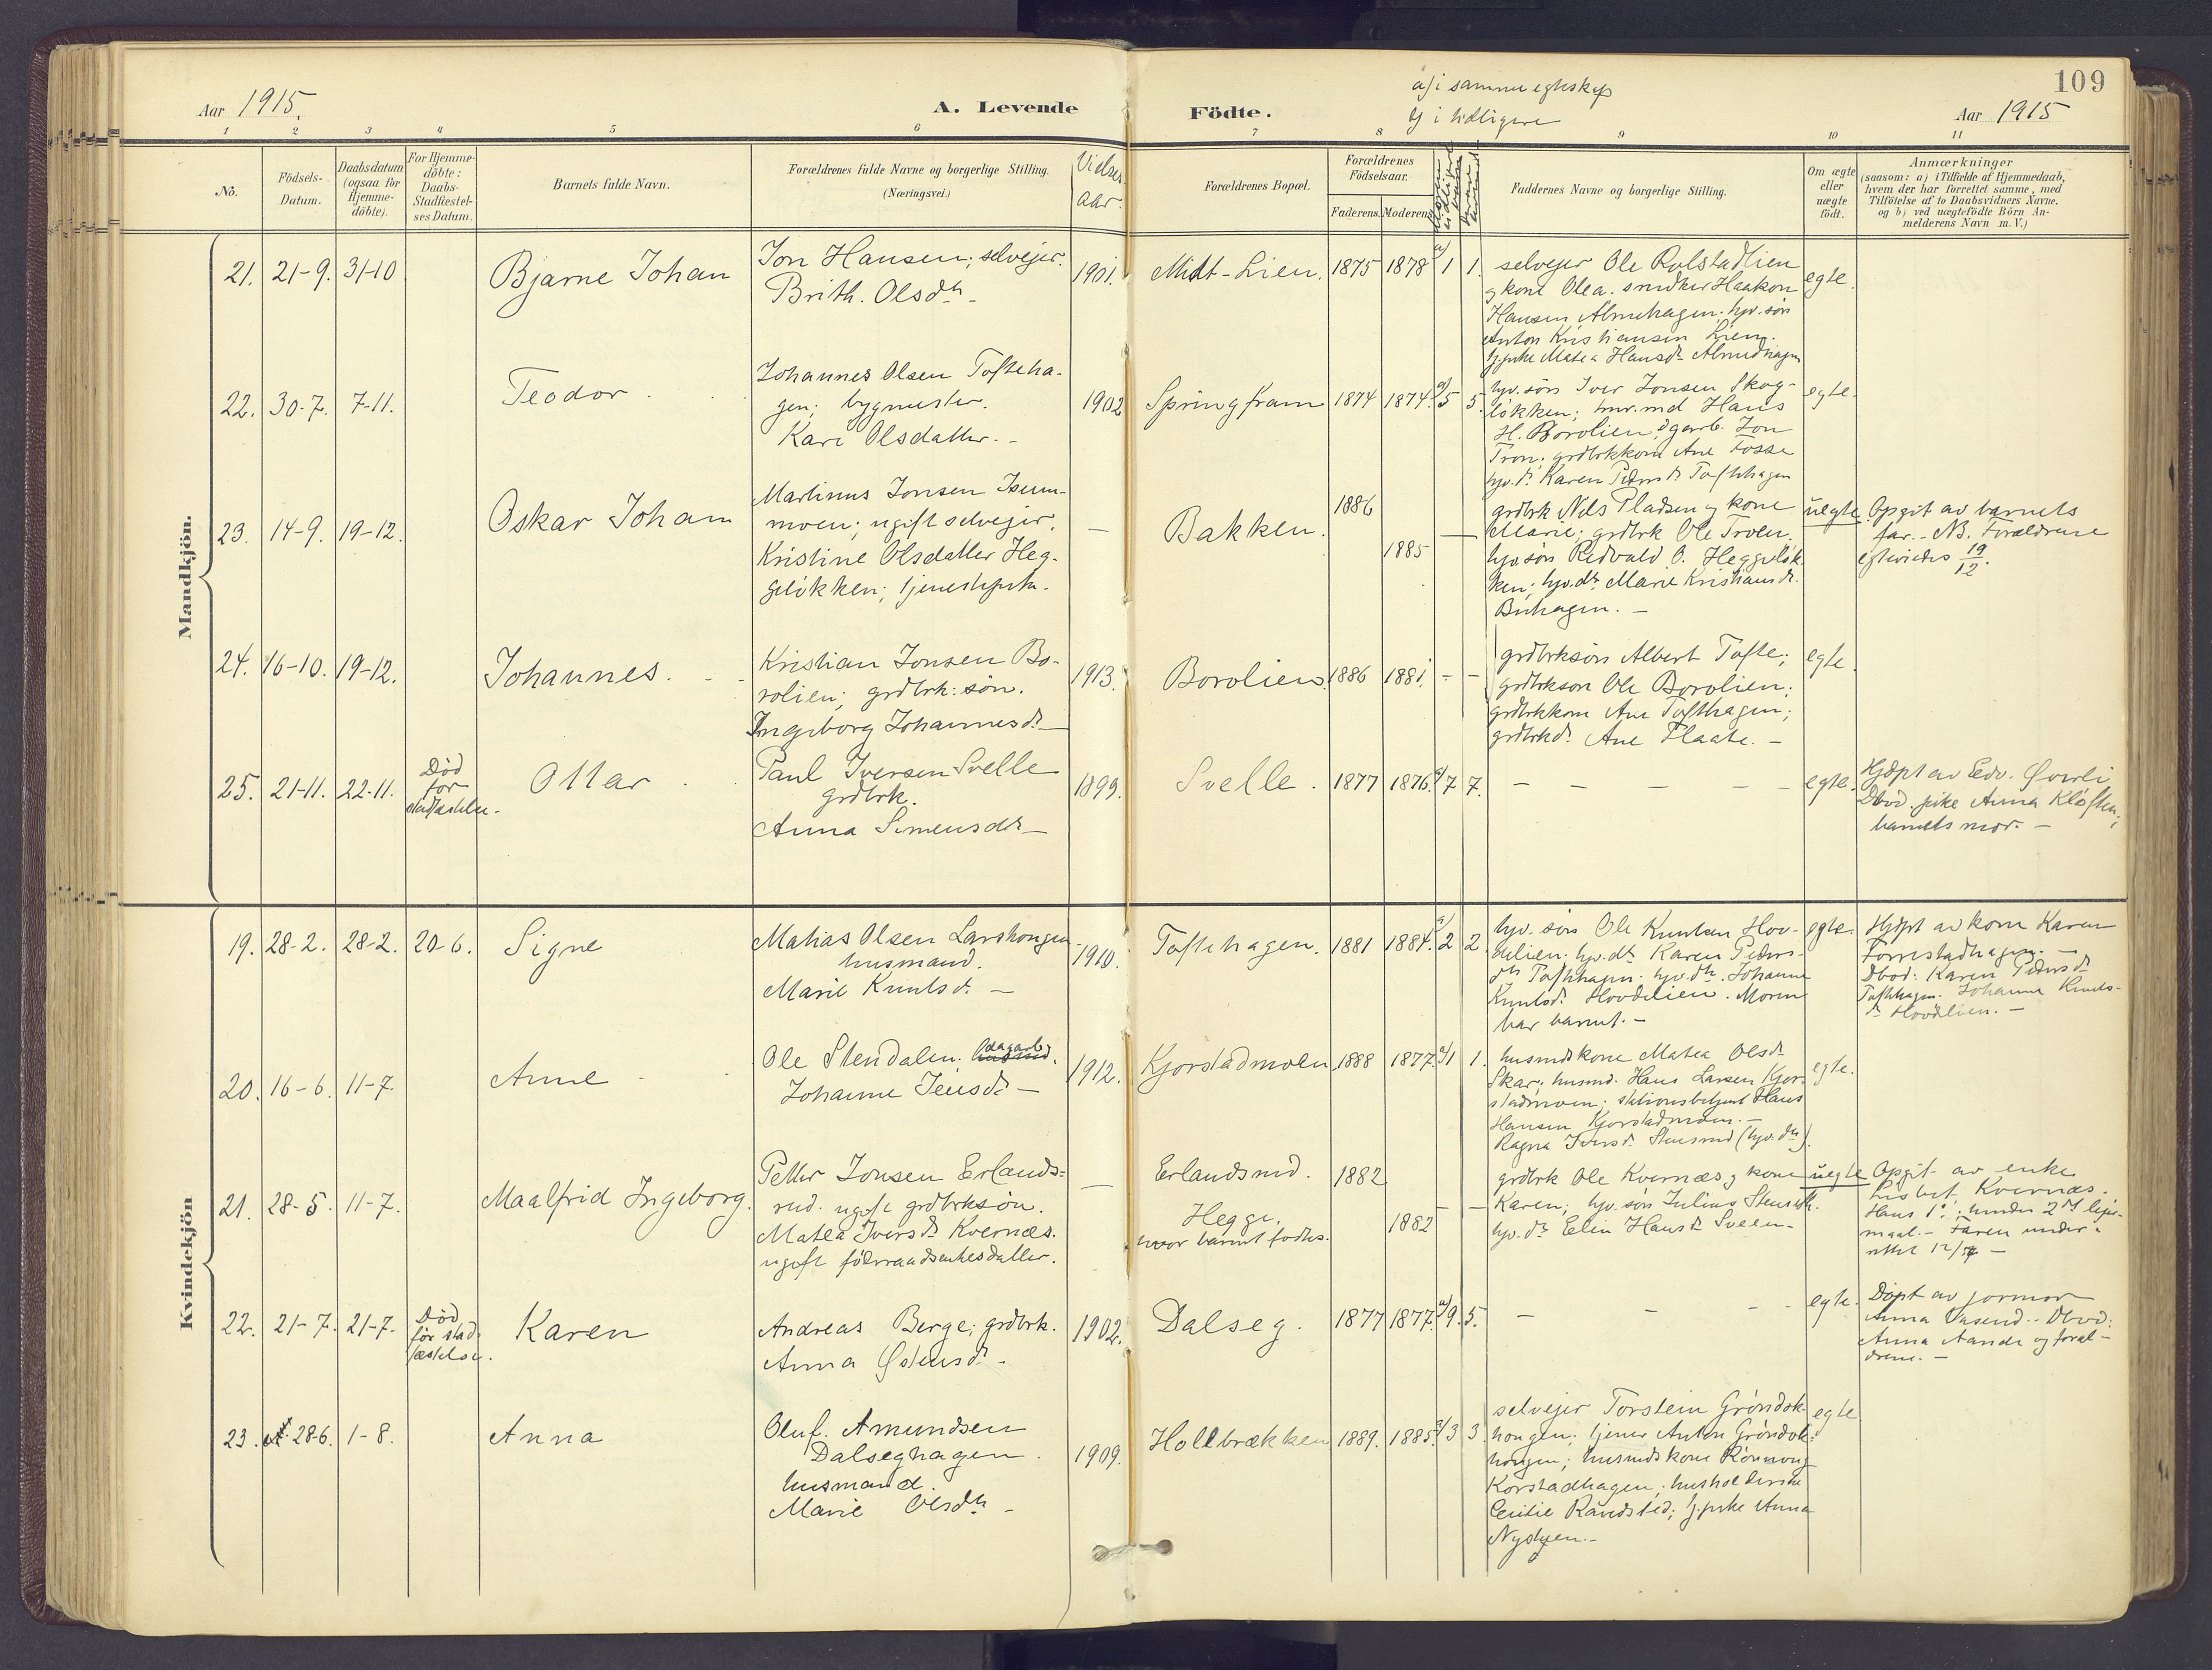 109
Aar 1915.
A. Levende
Födte.
a/ i samme egteskap
b/ i tidligere
Aar 1915
1 2 3 4 5 6 7 8 9 10 11
No.
Födsels-
Datum.
Daabsdatum
(ogsaa for
Hjemme-
döbte).
For Hjemme-
döbte:
Daabs-
Stadfæstel-
ses Datum.
Barnets fulde Navn.
Forældrenes fulde Navne og borgerlige Stilling.
(Næringsvei.)
Vielses
aar.
Forældrenes Bopæl.
Forældrenes
Födselsaar.
Faderens. Moderens.
Faddernes Navne og borgerlige Stilling.
Om ægte
eller
uægte
födt.
Anmærkninger
(saasom: a) i Tilfælde af Hjemmedaab,
hvem der har forrettet samme, med
Tilföielse af to Daabsvidners Navne,
og b) ved uægtefödte Börn An-
melderens Navn m. V.)
Mandkjön.
21. 21-9. 31-10
Bjarne Johan
Jon Hansen; selvejer.
Brith. Olsdtr -
1901.
Midt-Lien.
1875 1878 a/ 1 1.
selvejer Ole Rolstadlien
og kone Olea. snedker Haakon
Hansen Almehagen. hjv. søn
Anton Kristiansen Lien.
tj.pike Matea Hansdr
egte.
22. 30-7. 7-11.
Teodor
Johannes Olsen Tofteha-
gen; bygmester.
Kari Olsdatter. -
1902
Springfram
1874 1874. a/ 5 5.
hjv. søn Iver Jonsen Skog-
løkken; Hans
H. Borolien, Jon
Tron. grdbrkkone Ane Fosse
hjv. dr Karen Pedersdr Toftehagen
egte.
23. 14-9. 19-12.
Oskar Johan
Martinus Jonsen Isum-
moen; ugift selvejer.
Kristine Olsdatter Heg-
geløkken; tjenestepike.
—
Bakken.
1886
1885
—
grdbrk Nils Pladsen og kone
Marie; grdbrk Ole Troen.
hjv. søn Redvald O. Heggeløk-
ken; hjv. dtr Marie Kristiansdr
Buhagen. -
uegte.
Opgit av barnets
far. - NB. Forældrene
egtevieddes 19/12.
24. 16-10. 19-12.
Johannes.
Kristian Jonsen Bo-
rolien; grdbrk. søn.
Ingeborg Johannesdr -
1913.
Borolien.
1886 1881. - -
grdbrksøn Albert Tofte;
grdbrksøn Ole Borolien;
grdbrkkone Ane Toftehagen;
grdbrkdr Ane Plaate. -
egte.
25. 21-11. 22-11.
Død
før
stadfæstelse.
Ottar
Paul Iversen Svelle
grdbrk.
Anna Simensdtr -
1899.
Svelle.
1877 1876. a/ 7 7.
- - - - -
egte.
Hjdøpt av Edv. Øverli
Dbvd. pike Anna Kløften;
barnets mor. -
Kvindekjön
19. 28-2. 28-2. 20-6.
Signe
Matias Olsen Larshougen
husmand.
Marie Knutsdr -
1910.
Toftehagen.
1881 1884. a/ 2 2.
hjv. søn Ole Knutsen Hov-
delien. hjv. dtr Karen Peders-
dtr Toftehagen. hjv. dtr. Johanne
Knutsdr Hovdelien. Moren
bar barnet. -
egte.
Hjdøpt av kone Karen
Forrestadhagen. -
Dbvd. Karen Pedersdr
Toftehagen. Johanne Knuts-
dr Hovdelien. -
20. 16-6. 11-7.
Anne
Ole Stendalen. dagarb.
Johanne Jensdr -
1912.
Kjorstadmoen
1888 1877. a/ 1 1.
husmdskone Matea Olsdr
Skar; husmd. Hans Larsen Kjor-
stadmoen; stationsbetjent Hans
Hansen Kjorstadmoen. -
Ragna Iversdr Stensrud (hjv. dtr).
egte.
21. 28-5. 11-7.
Maalfrid Ingeborg.
Petter Jonsen Erlands-
rud. ugift grdbrksøn.
Matea Iversdr Kvernæs.
ugift føderaadsenkesdatter.
—
Erlandsrud.
Hegge.
hvor barnet fødtes.
1882
1882
- -
grdbrk Ole Kvernæs og kone
Karen; hjv. søn Julius
hjv. dr Elin Hansdr Sveen -
uegte.
Opgit av enke
Lisbet Kvernæs.
Hans 1ste; hendes 2det leier-
maal. - Faren under-
rettet 12/7 -
22. 21-7. 21-7.
Død
før stad-
fæstelse.
Karen
Andreas Berge; grdbrk.
Anna Østensdr -
1902.
Dalseg.
1877 1877. a/ 9. 5.
- - -
egte.
Døpt av jormor
Anna Vasend. - Dbvd:
Anna Aande og foræl-
drene. -
23. 28-6. 1-8.
Anna
Oluf. Amundsen
Dalseghagen.
husmand.
Marie Olsdtr -
1909.
Hollbrækken
1889. 1885. a/ 3 3.
selvejer Torstein Grøndok-
hougen; tjener Anton Grøndok-
hougen; husmdskone Rønnoug
Korstadhagen; husholderske
Cecilie Randsted; tj.pike Anna
egte.